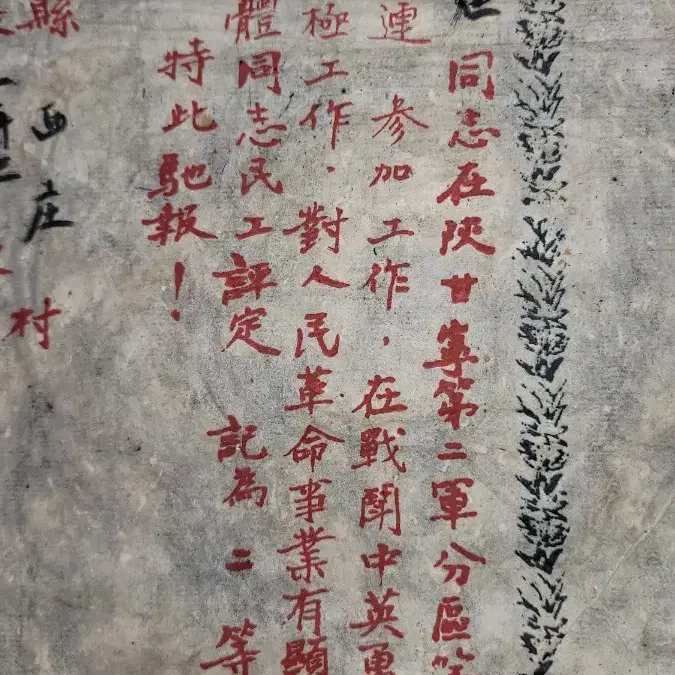 同志在陝甘寧第二軍分區第
連 參加工作，在戰鬪中英勇
極工作．對人民革命事業有顯
體同志民工評定 記為二等
特此馳報！
縣 西庄 村